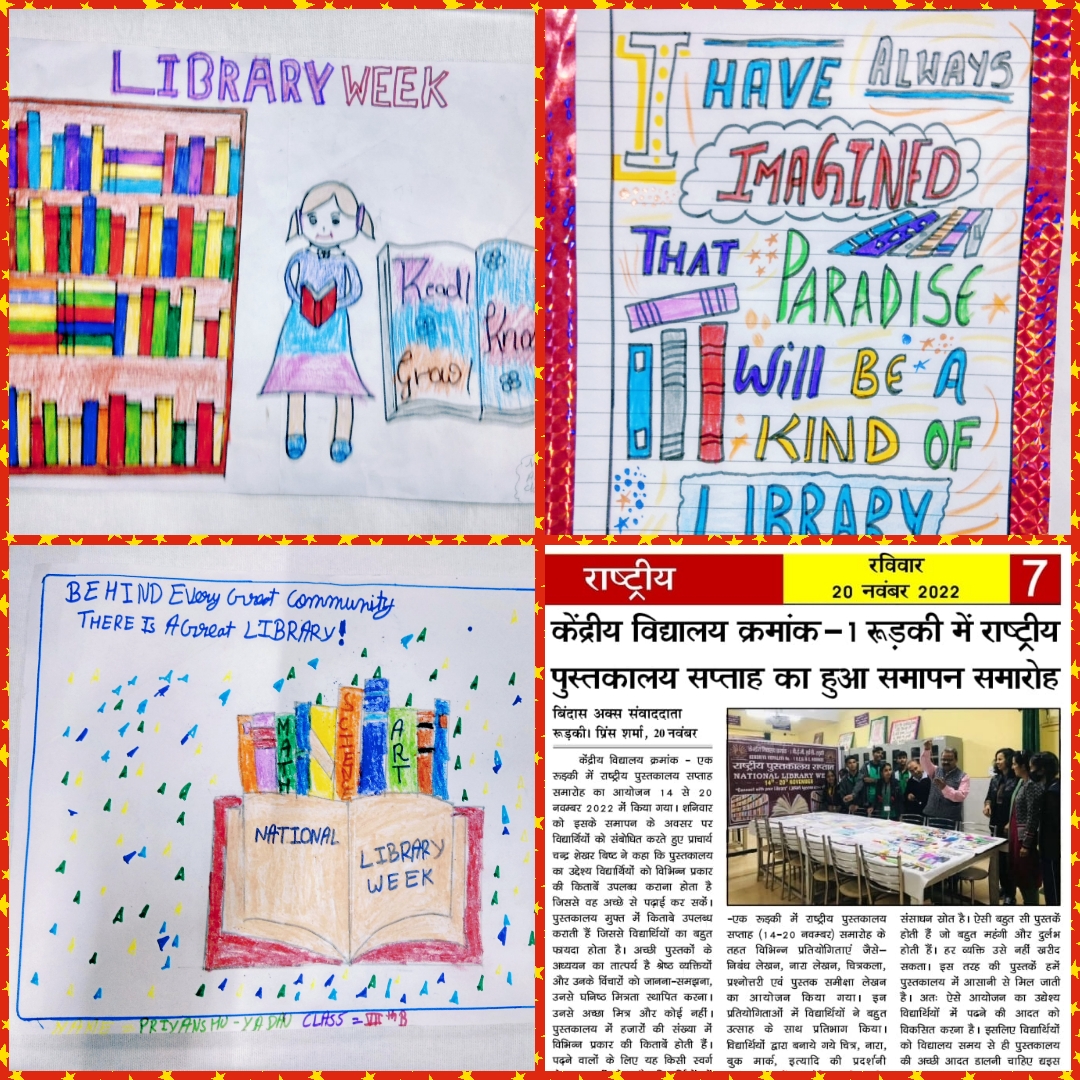 LIBRARY WEEK
Read!
Grow!
I HAVE ALWAYS
IMAGINED
THAT PARADISE
Will BE A
KIND OF
LIBRARY
BEHIND Every Great Community
THERE Is A Great LIBRARY!
MATH
SCIENCE
ART
NATIONAL
LIBRARY
WEEK
PRIYANSHU-YADAV CLASS = VII th B
राष्ट्रीय
रविवार
20 नवंबर 2022
7
केंद्रीय विद्यालय क्रमांक-1 रूड़की में राष्ट्रीय
पुस्तकालय सप्ताह का हुआ समापन समारोह
बिंदास अक्स संवाददाता
रूड़की। प्रिंस शर्मा, 20 नवंबर
केंद्रीय विद्यालय क्रमांक - एक
रूड़की में राष्ट्रीय पुस्तकालय सप्ताह
समारोह का आयोजन 14 से 20
नवम्बर 2022 में किया गया। शनिवार
को इसके समापन के अवसर पर
विद्यार्थियों को संबोधित करते हुए प्राचार्य
चन्द्र शेखर बिष्ट ने कहा कि पुस्तकालय
का उद्देश्य विद्यार्थियों को विभिन्न प्रकार
की किताबें उपलब्ध कराना होता है
जिससे वह अच्छे से पढ़ाई कर सकें।
पुस्तकालय मुफ्त में किताबे उपलब्ध
कराती हैं जिससे विद्यार्थियों का बहुत
फायदा होता है। अच्छी पुस्तकों के
अध्ययन का तात्पर्य है श्रेष्ठ व्यक्तियों
और उनके विचारों को जानना-समझना,
उनसे घनिष्ठ मित्रता स्थापित करना।
उनसे अच्छा मित्र और कोई नहीं।
पुस्तकालय में हजारों की संख्या में
विभिन्न प्रकार की किताबें होती हैं।
पढ़ने वालों के लिए यह किसी स्वर्ग
राष्ट्रीय पुस्तकालय सप्ताह
NATIONAL LIBRARY WE
14th - 20th NOVEMBER
-एक रूड़की में राष्ट्रीय पुस्तकालय
सप्ताह (14-20 नवम्बर) समारोह के
तहत विभिन्न प्रतियोगिताएं जैसे-
निबंध लेखन, नारा लेखन, चित्रकला,
प्रश्नोत्तरी एवं पुस्तक समीक्षा लेखन
का आयोजन किया गया। इन
प्रतियोगिताओं में विद्यार्थियों ने बहुत
उत्साह के साथ प्रतिभाग किया।
विद्यार्थियों द्वारा बनाये गये चित्र, नारा,
बुक मार्क, इत्यादि की प्रदर्शनी
संसाधन स्रोत है। ऐसी बहुत सी पुस्तकें
होती हैं जो बहुत महंगी और दुर्लभ
होती हैं। हर व्यक्ति उसे नहीं खरीद
सकता। इस तरह की पुस्तकें हमें
पुस्तकालय में आसानी से मिल जाती
है। अतः ऐसे आयोजन का उद्देश्य
विद्यार्थियों में पढने की आदत को
विकसित करना है। इसलिए विद्यार्थियों
को विद्यालय समय से ही पुस्तकालय
की अच्छी आदत डालनी चाहिए